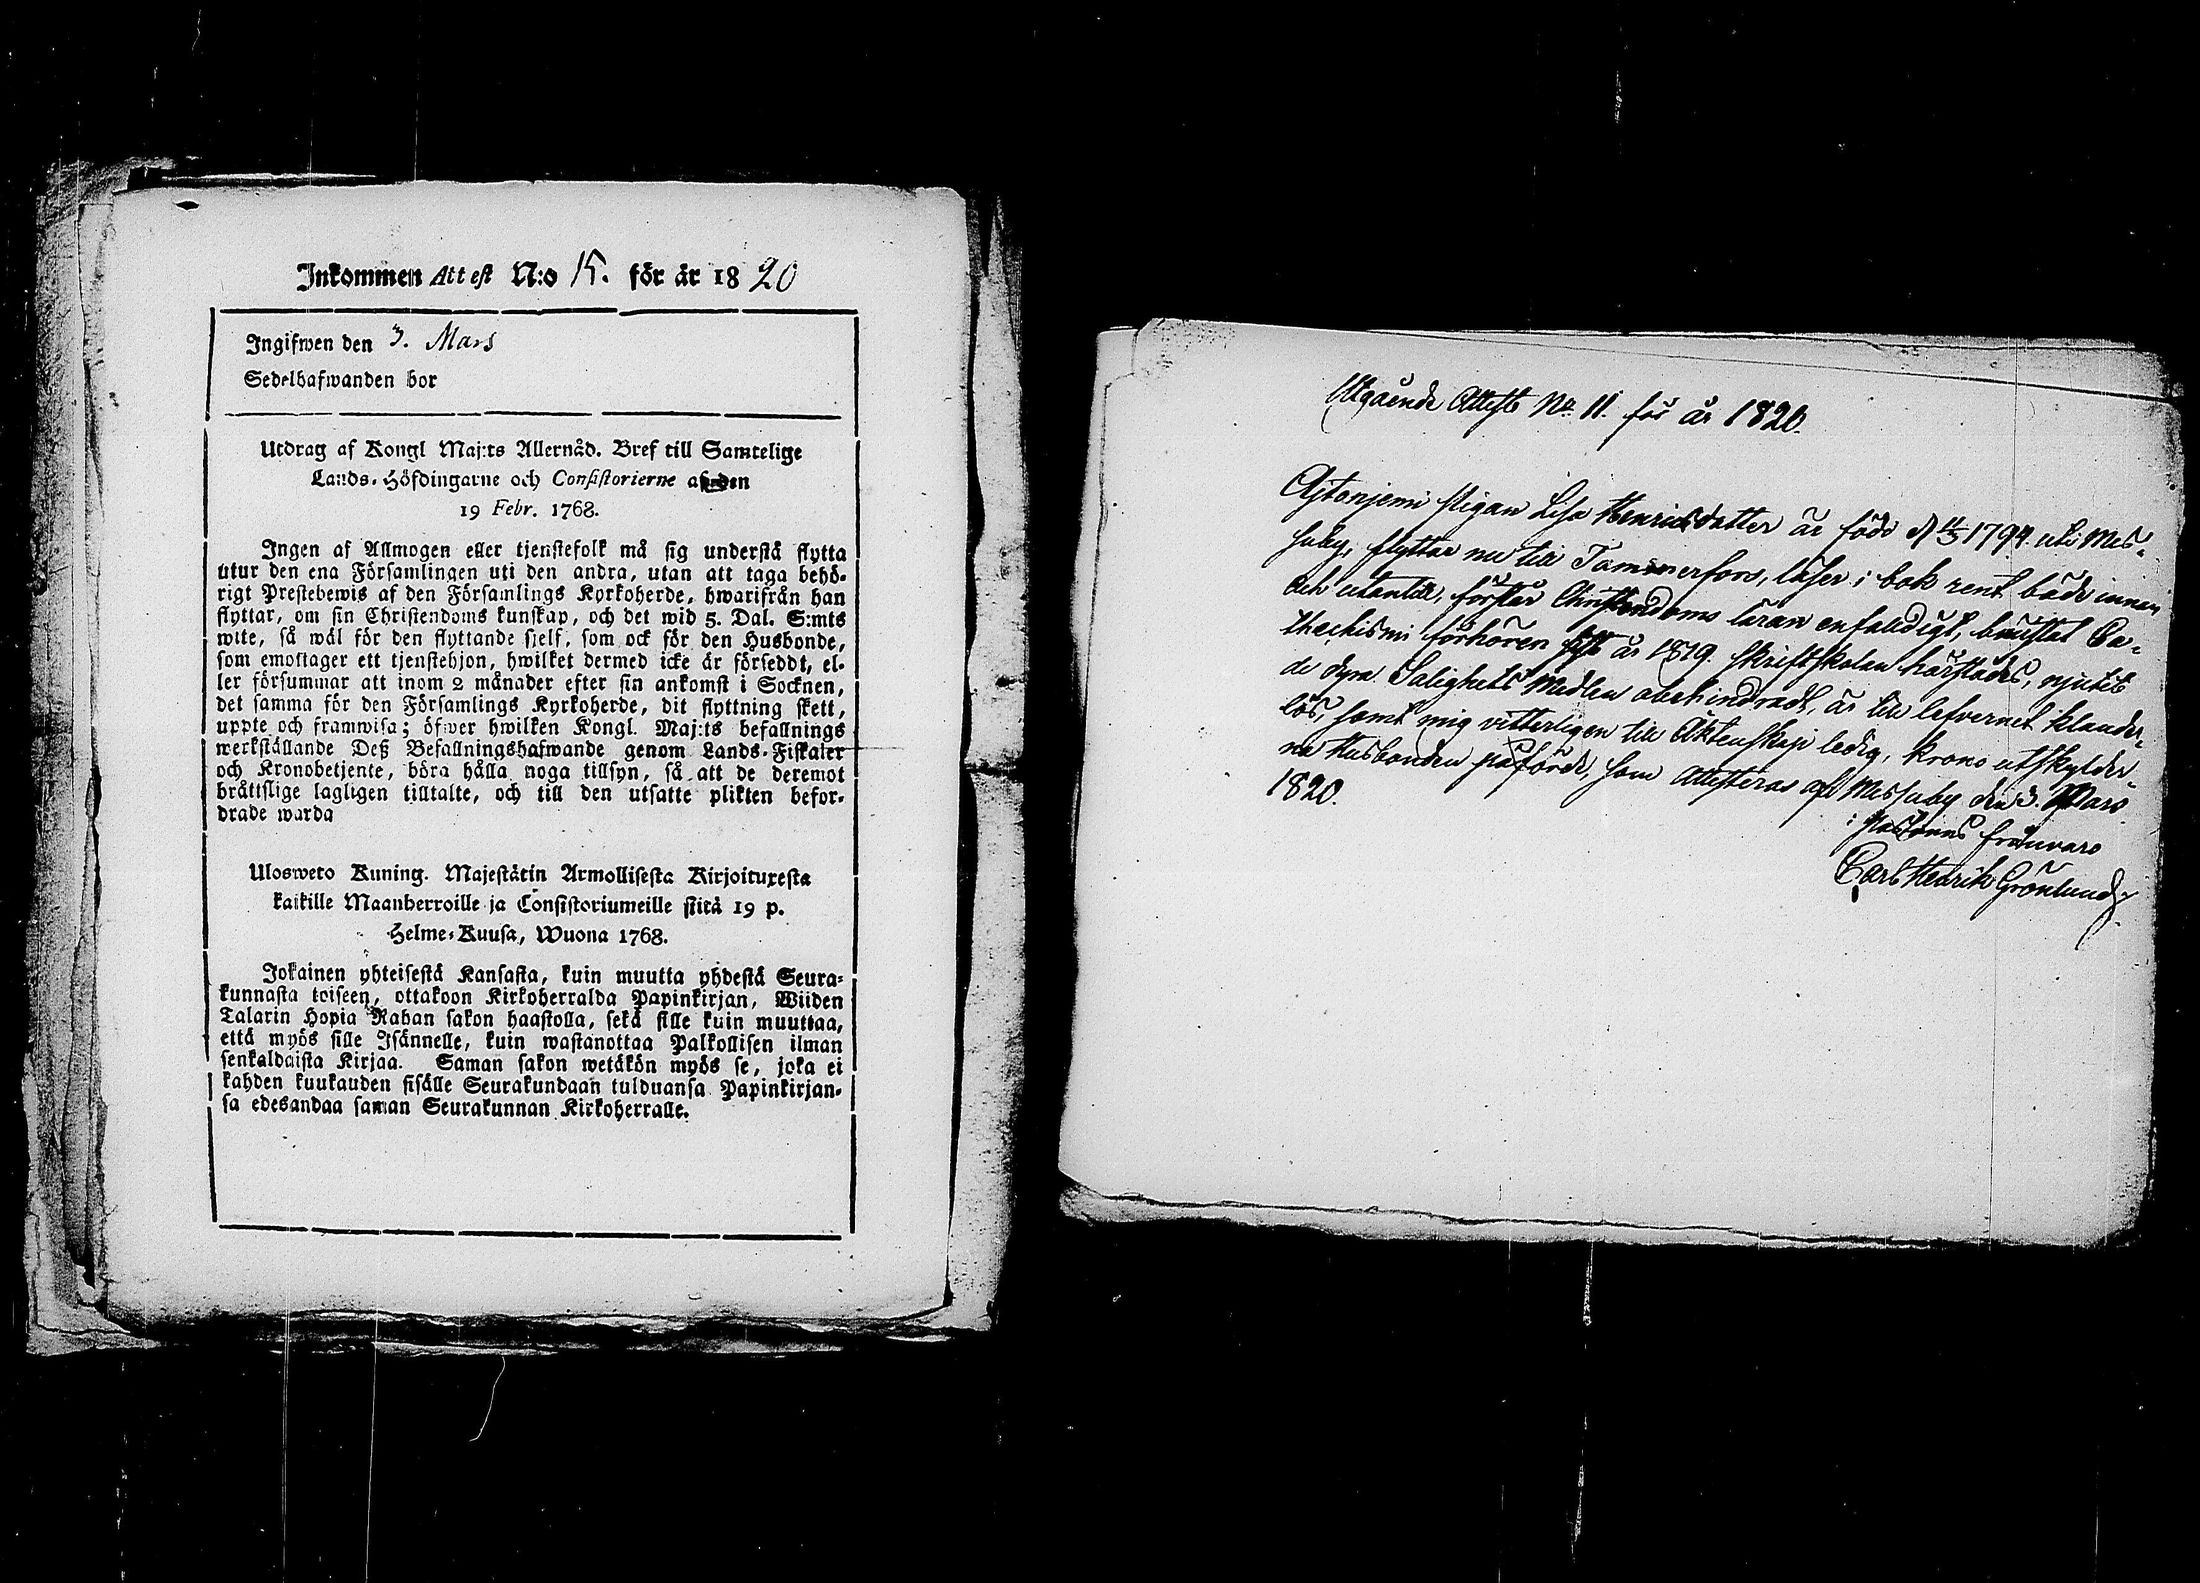 Inkommen Attest N:o 15. för år 1820
Ingifwen den 3. Mars
Sedelhafwanden bor
Utdrag af Kongl Maj:ts Allernåd. Bref till Samtelige
Lands-Höfdingarne och Consistorierne af den
19 Febr. 1768.
Ingen af Allmogen eller tjenstefolk må sig understå flytta
utur den ena Församlingen uti den andra, utan att taga behö-
rigt Prestebewis af den Församlings Kyrkoherde, hwarifrån han
flyttar, om sin Christendoms kunskap, och det wid 5. Dal. S:mts
wite, så wäl för den flyttande sjelf, som ock för den Husbonde,
som emottager ett tjenstehjon, hwilket dermed icke är förseddt, el-
ler försummar att inom 2 månader efter sin ankomst i Socknen,
det samma för den Församlings Kyrkoherde, dit flyttning skett,
uppte och framwisa; öfwer hwilken Kongl. Maj:ts befallnings
werkställande Deß Befallningshafwande genom Lands-Fiskaler
och Kronobetjente, böra hålla noga tillsyn, så att de deremot
bråttslige lagligen tilltalte, och till den utsatte plikten befor-
drade warda
Ulosweto Kuning. Majestätin Armollisesta Kirjoituxesta
kaikille Maanherroille ja Consistoriumeille siitä 19 p.
Helme-Kuusa, Wuona 1768.
Jokainen yhteisestä Kansasta, kuin muutta yhdestä Seura-
kunnasta toiseen, ottakoon Kirkoherralda Papinkirjan, Wiiden
Talarin Hopia Rahan sakon haastolla, sekä sille kuin muuttaa,
että myös sille Isännelle, kuin wastanottaa Palkollisen ilman
senkaldaista Kirjaa. Saman sakon wetäkön myös se, joka ei
kahden kuukauden sisälle Seurakundaan tulduansa Papinkirjan-
sa edesandaa saman Seurakunnan Kirkoherralle.
Utgående Attest No. 11. för år 1820.
Ajtonjemi pigan Lisa Henricsdotter är född d 11/5 1794 uti Mes-
suby, flyttar nu till Tammerfors, läser i bok rent både innan
och utantill, förstår Christendoms läran enfaldigt, bivistat Ca-
thechismi förhören sist år 1819. skriftskolan härstädes, njutit
de dyra Salighets Medlen obehindradt, är till lefvernet klander-
lös, samt mig vitterligen till Äktenskap ledig, krono utskylder-
na Husbonden påförde, som attesteras af Messuby den 3. Mars
1820.
i Pastorns frånvaro
Carl Henrik Grönlund